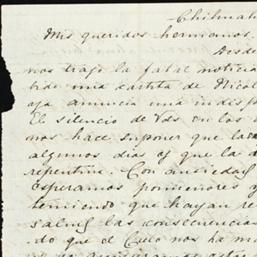 Chihuah
Mis queridos hermanos,
Desde
nos trajo la fatal noticia
tido una cartita de Nicol
aja anuncia una indisp
El silencio de Vds. en las
nos hace suponer que la
algunos dias ej que la d
repentina. Con ansiedad
esperamos pormenores y
temiendo que hayan re
salud las consecuencia
do que el Cielo nos ha m